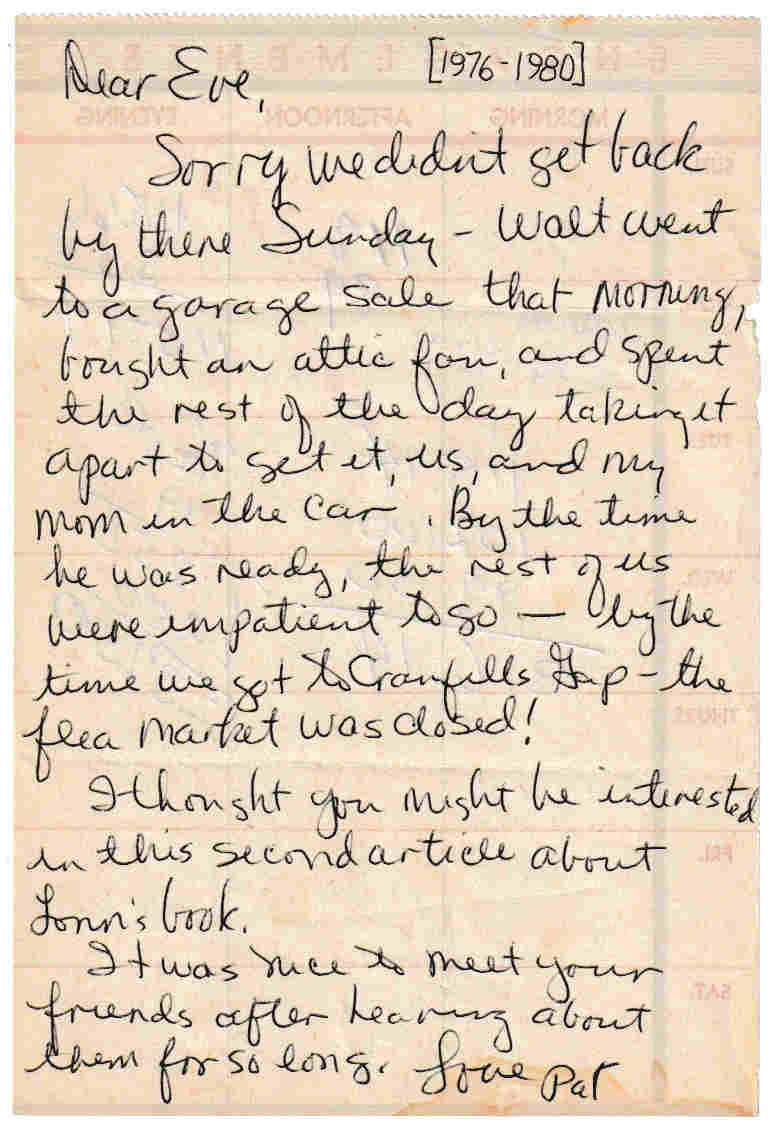 Dear Eve,
[1976-1980]
Sorry we didn't get back
by there Sunday - Walt went
to a garage sale that morning,
bought an attic fan, and spent
the rest of the day taking it
apart to get it, us, and my
mom in the car. By the time
he was ready, the rest of us
were impatient to go — by the
time we got to Cranfills Gap - the
flea market was closed!
I thought you might be interested
in this second article about
Lonn's book.
It was nice to meet your
friends after hearing about
them for so long. Love Pat
ENGAGEMENTS
MORNING AFTERNOON EVENING
SUN.
TUE.
WED.
THURS.
FRI.
SAT.